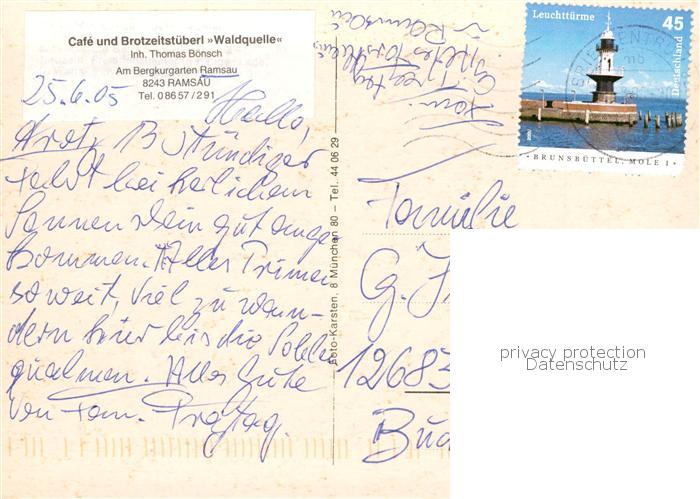 Café und Brotzeitstüberl »Waldquelle«
Inh. Thomas Bönsch
Am Bergkurgarten Ramsau
8243 RAMSAU
Tel. 0 86 57 / 2 91
25.6.05
Hallo,
Trotz 13 stündiger
Fahrt bei herlichem
Sonnenschein gut ange
kommen. Alles Prima
soweit, viel zu wan-
dern hier bis die Sohlen
qualmen. Alles Gute
von Fam. Freytag.
Fam. Freytag
Ramsau
Foto-Karsten. 8 München 80 – Tel. 44 06 29
Leuchttürme
45
Deutschland
BRUNSBÜTTEL, MOLE 1
Familie
G.
12683
privacy protection
Datenschutz